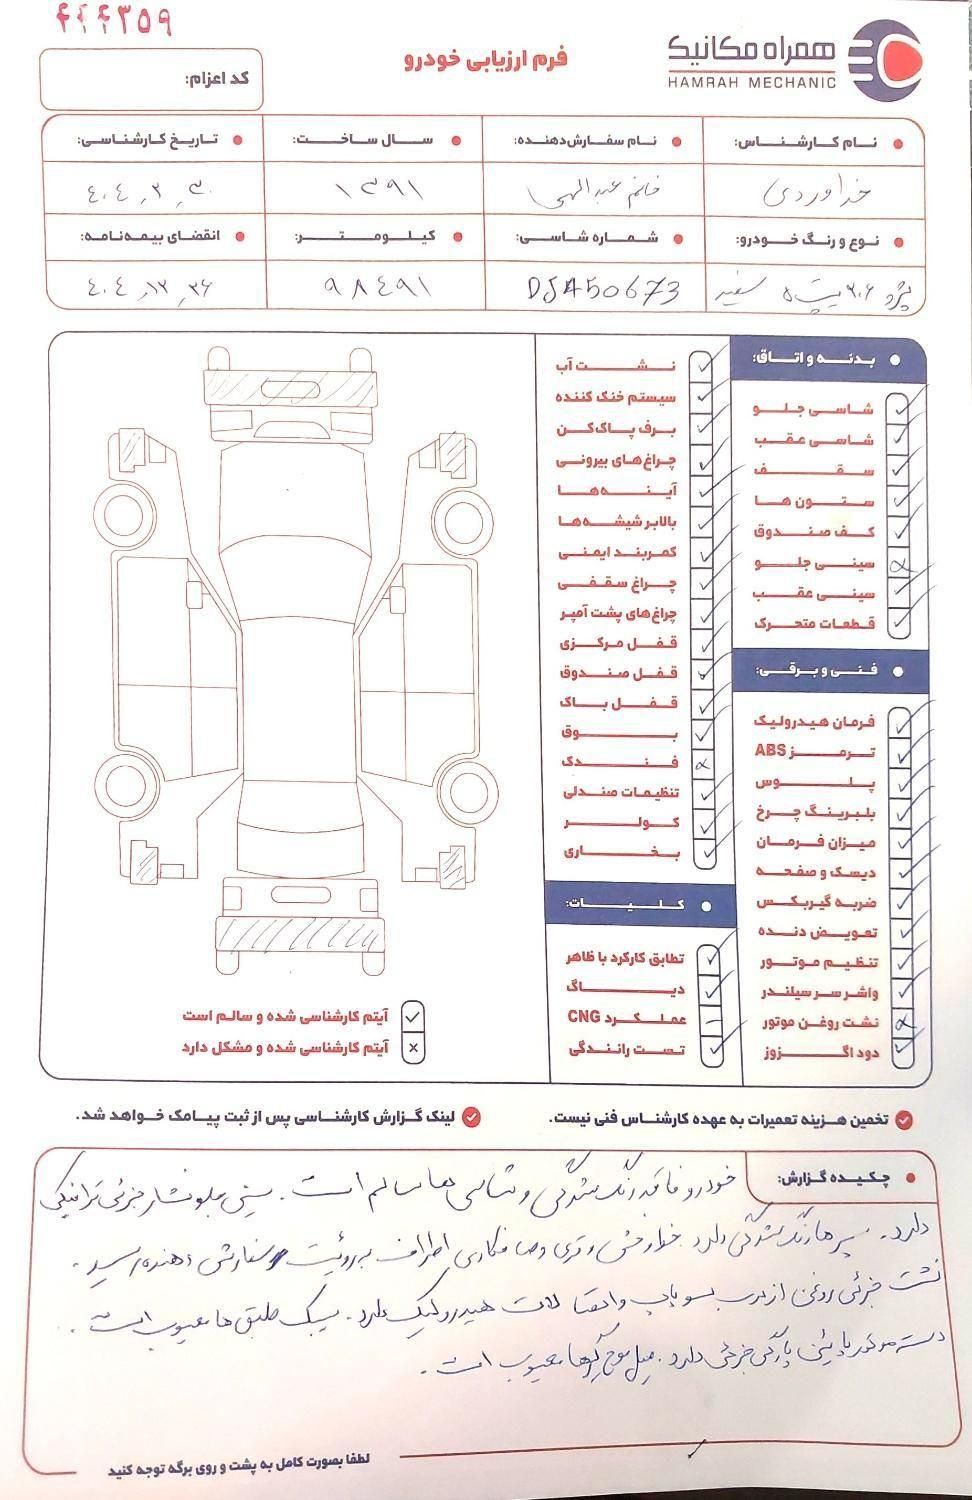 ۴۴۴۳۵۹
همراه مکانیک
HAMRAH MECHANIC
فرم ارزیابی خودرو
کد اعزام:
نام کارشناس:
نام سفارش‌دهنده:
سال ساخت:
تاریخ کارشناسی:
خداوردی
خانم عبدالهی
۱۳۹۱
۴۰۴،۳،۳۰
نوع و رنگ خودرو:
شماره شاسی:
کیلومتر:
انقضای بیمه‌نامه:
پژو ۲۰۶ تیپ ۵ سفید
DJ450673
۹۸۴۹۱
۴۰۴،۱۲،۲۶
بدنه و اتاق:
شاسی جلو
شاسی عقب
سقف
ستون ها
کف صندوق
سینی جلو
سینی عقب
قطعات متحرک
فنی و برقی:
فرمان هیدرولیک
ترمز ABS
پلوس
بلبرینگ چرخ
میزان فرمان
دیسک و صفحه
ضربه گیربکس
تعویض دنده
تنظیم موتور
واشر سر سیلندر
نشت روغن موتور
دود اگزوز
نشت آب
سیستم خنک کننده
برف پاک‌کن
چراغ‌های بیرونی
آینه‌ها
بالابر شیشه‌ها
کمربند ایمنی
چراغ سقفی
چراغ‌های پشت آمپر
قفل مرکزی
قفل صندوق
قفل باک
بوق
فندک
تنظیمات صندلی
کولر
بخاری
کلیات:
تطابق کارکرد با ظاهر
دیاگ
عملکرد CNG
تست رانندگی
آیتم کارشناسی شده و سالم است
آیتم کارشناسی شده و مشکل دارد
تخمین هزینه تعمیرات به عهده کارشناس فنی نیست.
لینک گزارش کارشناسی پس از ثبت پیامک خواهد شد.
چکیده گزارش:
خودرو فاقد رنگ شدگی و شاسی ها سالم است. سینی جلو فشار جزئی ترافیکی
دارد. سپرها رنگ شدگی دارد. خط و خش و تری و صافکاری اطراف به روئیت سفارش دهنده رسید.
نشت جزئی روغن از درب سوپاپ و اتصالات هیدرولیک دارد. سیبک طبق ها معیوب است.
دسته موتور پائین پارگی جزئی دارد. میل موج گیرها معیوب است.
لطفا بصورت کامل به پشت و روی برگه توجه کنید